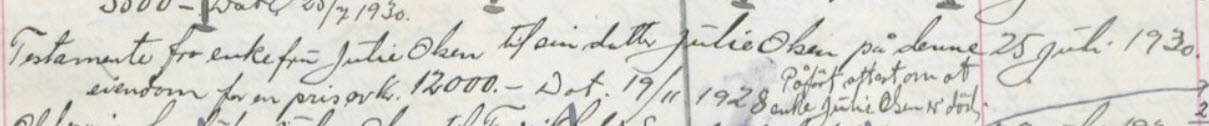 3000 - Dat. 25/7 1930.
Testamente fra enkefru Julie Olsen til sin datter Julie Olsen på denne 25 juli 1930.
eiendom for en pris av kr. 12000.- Dat. 19/11 1928 Påført attest om at
enke Julie Olsen er död.